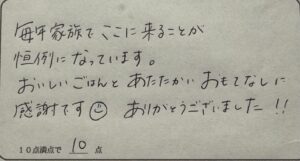 毎年家族でここに来ることが
恒例になっています。
おいしいごはんとあたたかいおもてなしに
感謝です☺ ありがとうございました!!
10点満点で 10 点